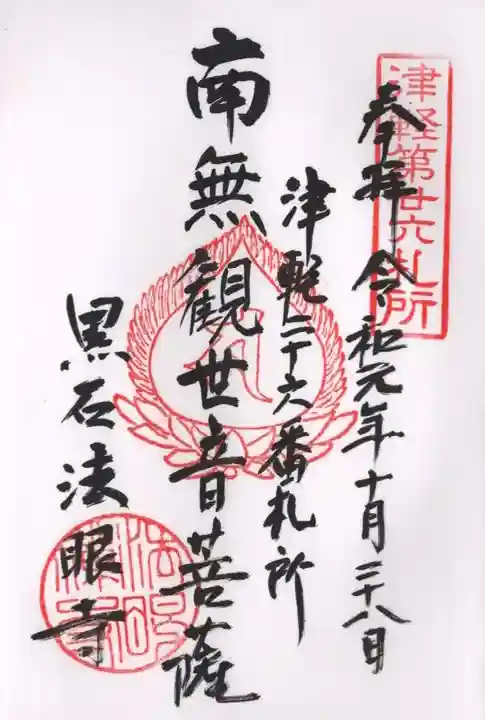 津軽第廿六札所
奉拝 令和元年十月二十八日
津軽二十六番札所
南無観世音菩薩
黒石法眼寺